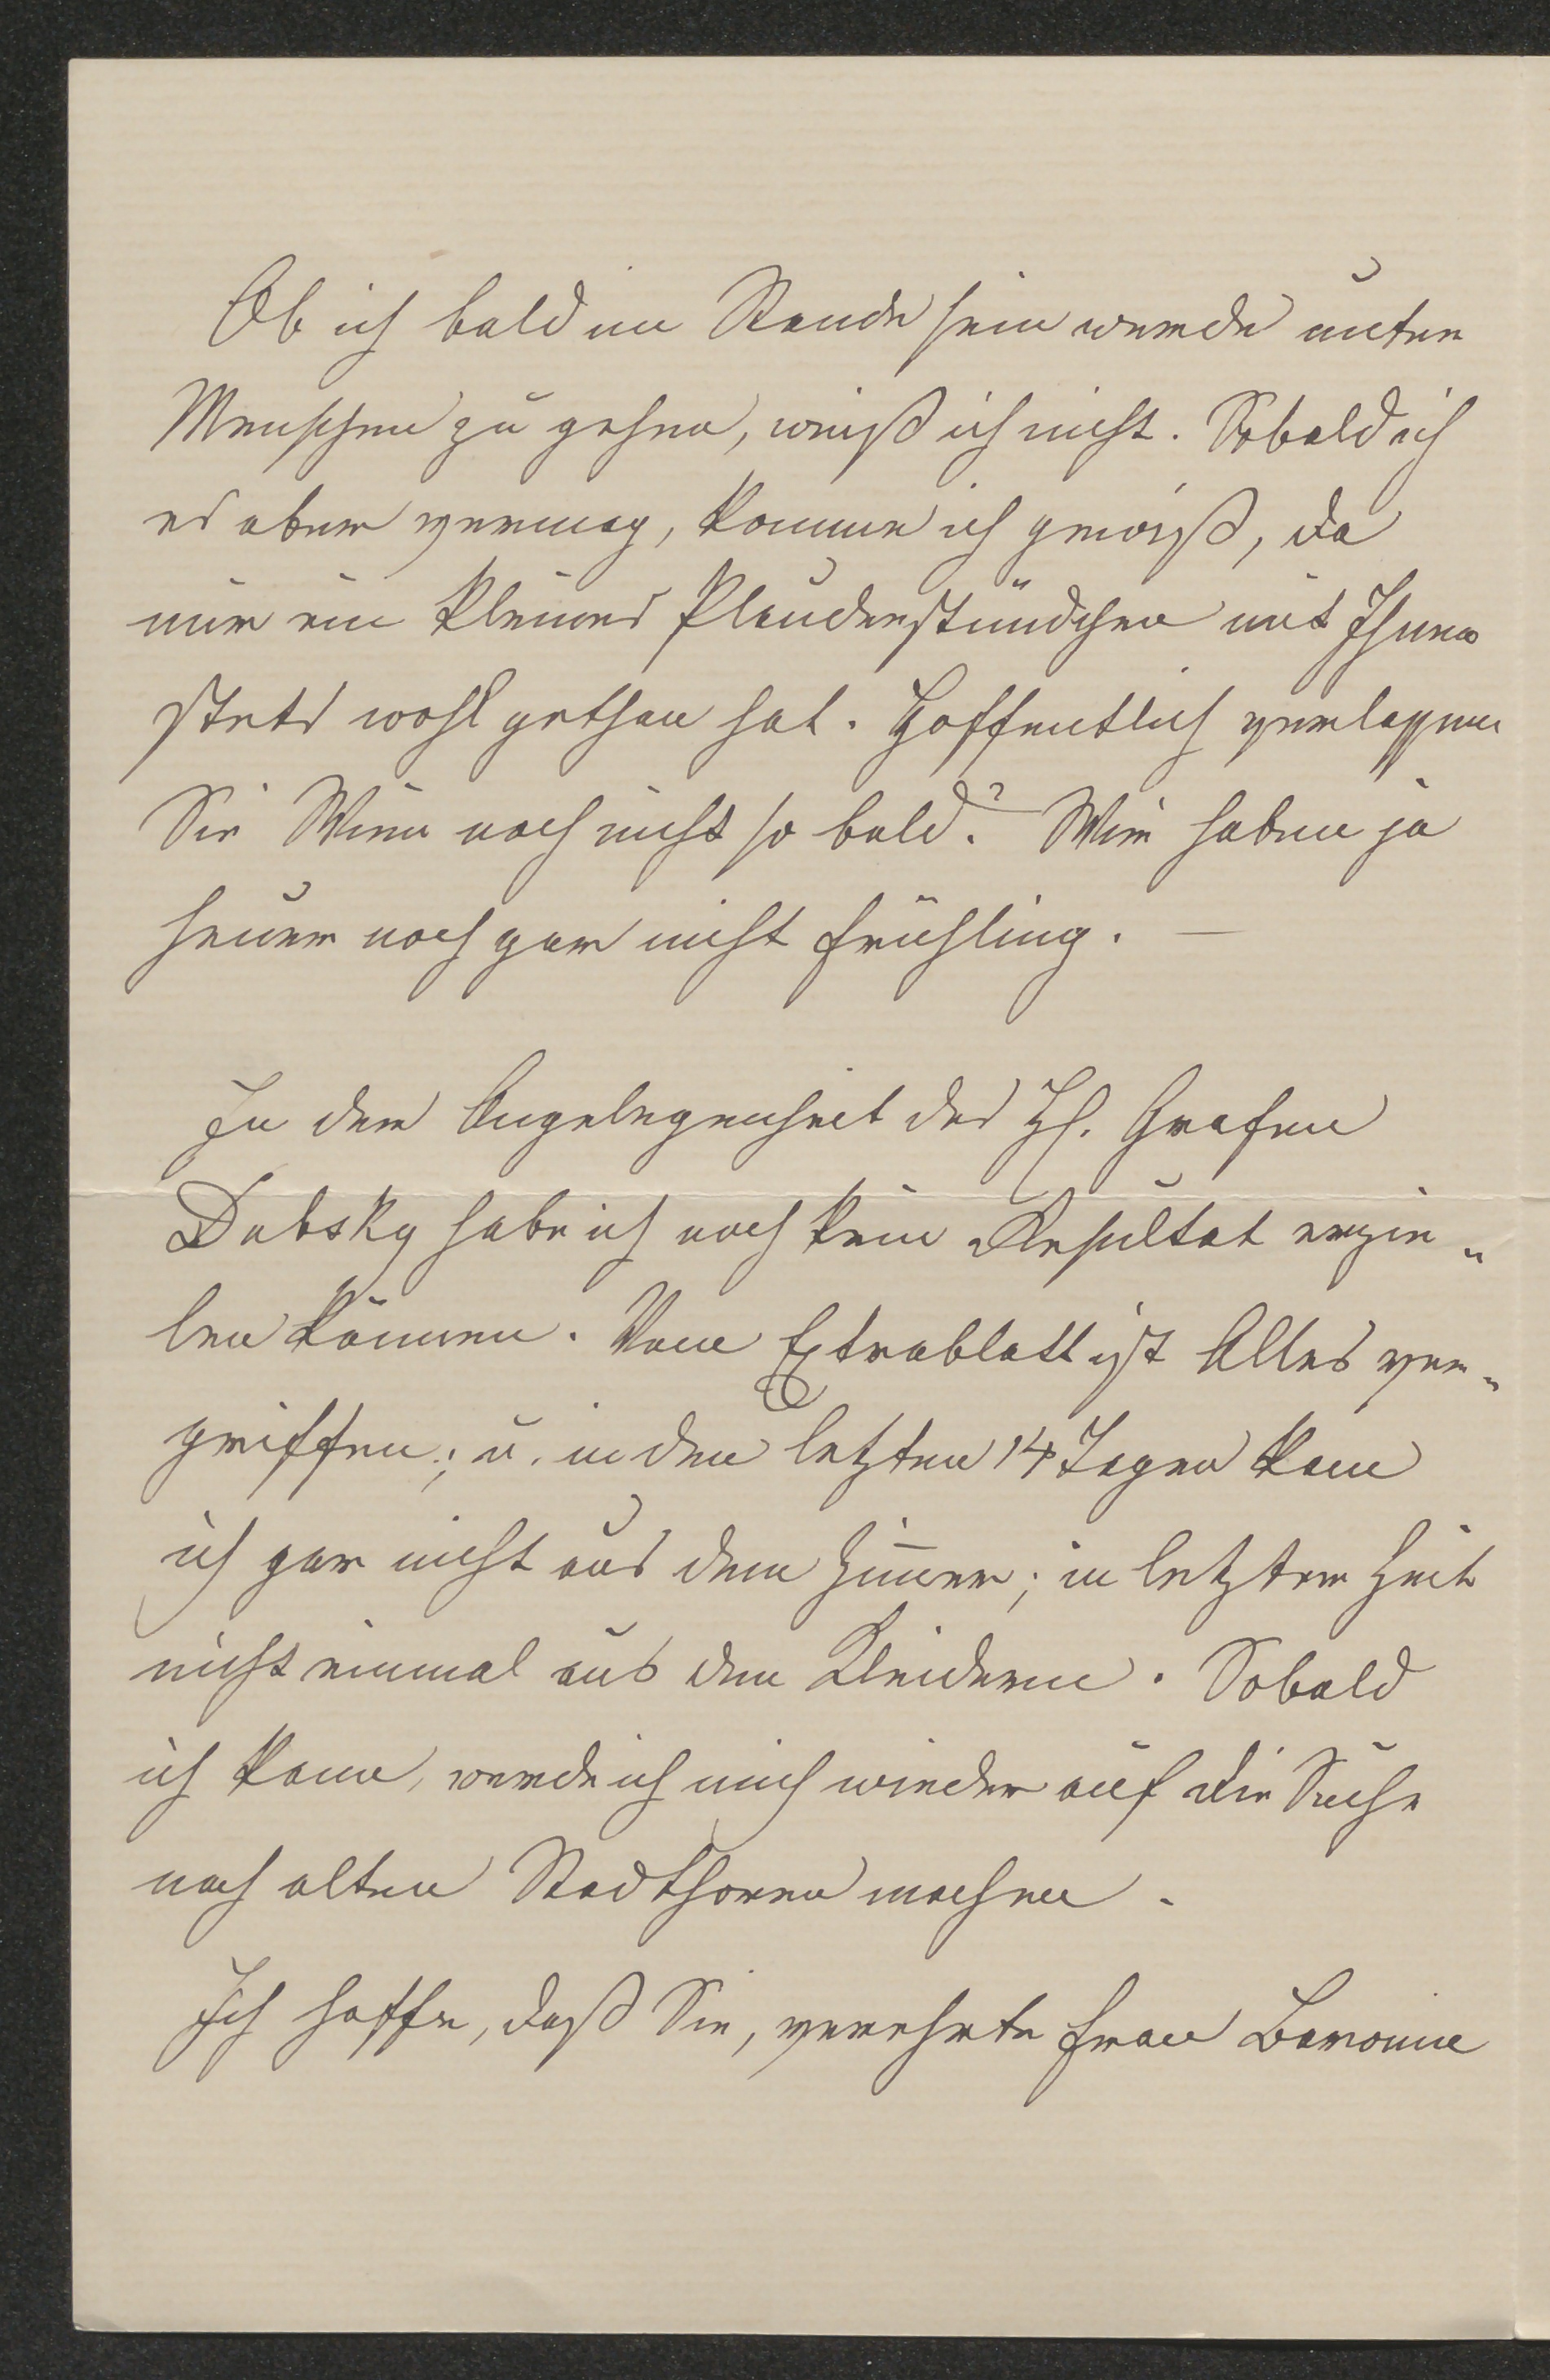 Ob ich bald im Stande sein werde unter
Menschen zu gehen, weiß ich nicht. Sobald ich
es aber vermag, komme ich gewiß, da
mir ein kleines Plauderstündchen mit Ihnen
stets wohl gethan hat. Hoffentlich verlassen
Sie Wien noch nicht so bald? Wir haben ja
heuer noch gar nicht Frühling. —
In der Angelegenheit des H. Grafen
Dubsky habe ich noch kein Resultat erzie„
len können. Vom Extrablatt ist Alles ver„
griffen; u. in den letzten 14 Tagen kam
ich gar nicht aus dem Zim̅er; in letzter Zeit
nicht einmal aus den Kleidern. Sobald
ich kann, werde ich mich wieder auf die Suche
nach alten Stadtthoren machen.
Ich hoffe, daß Sie, verehrte Frau Baronin